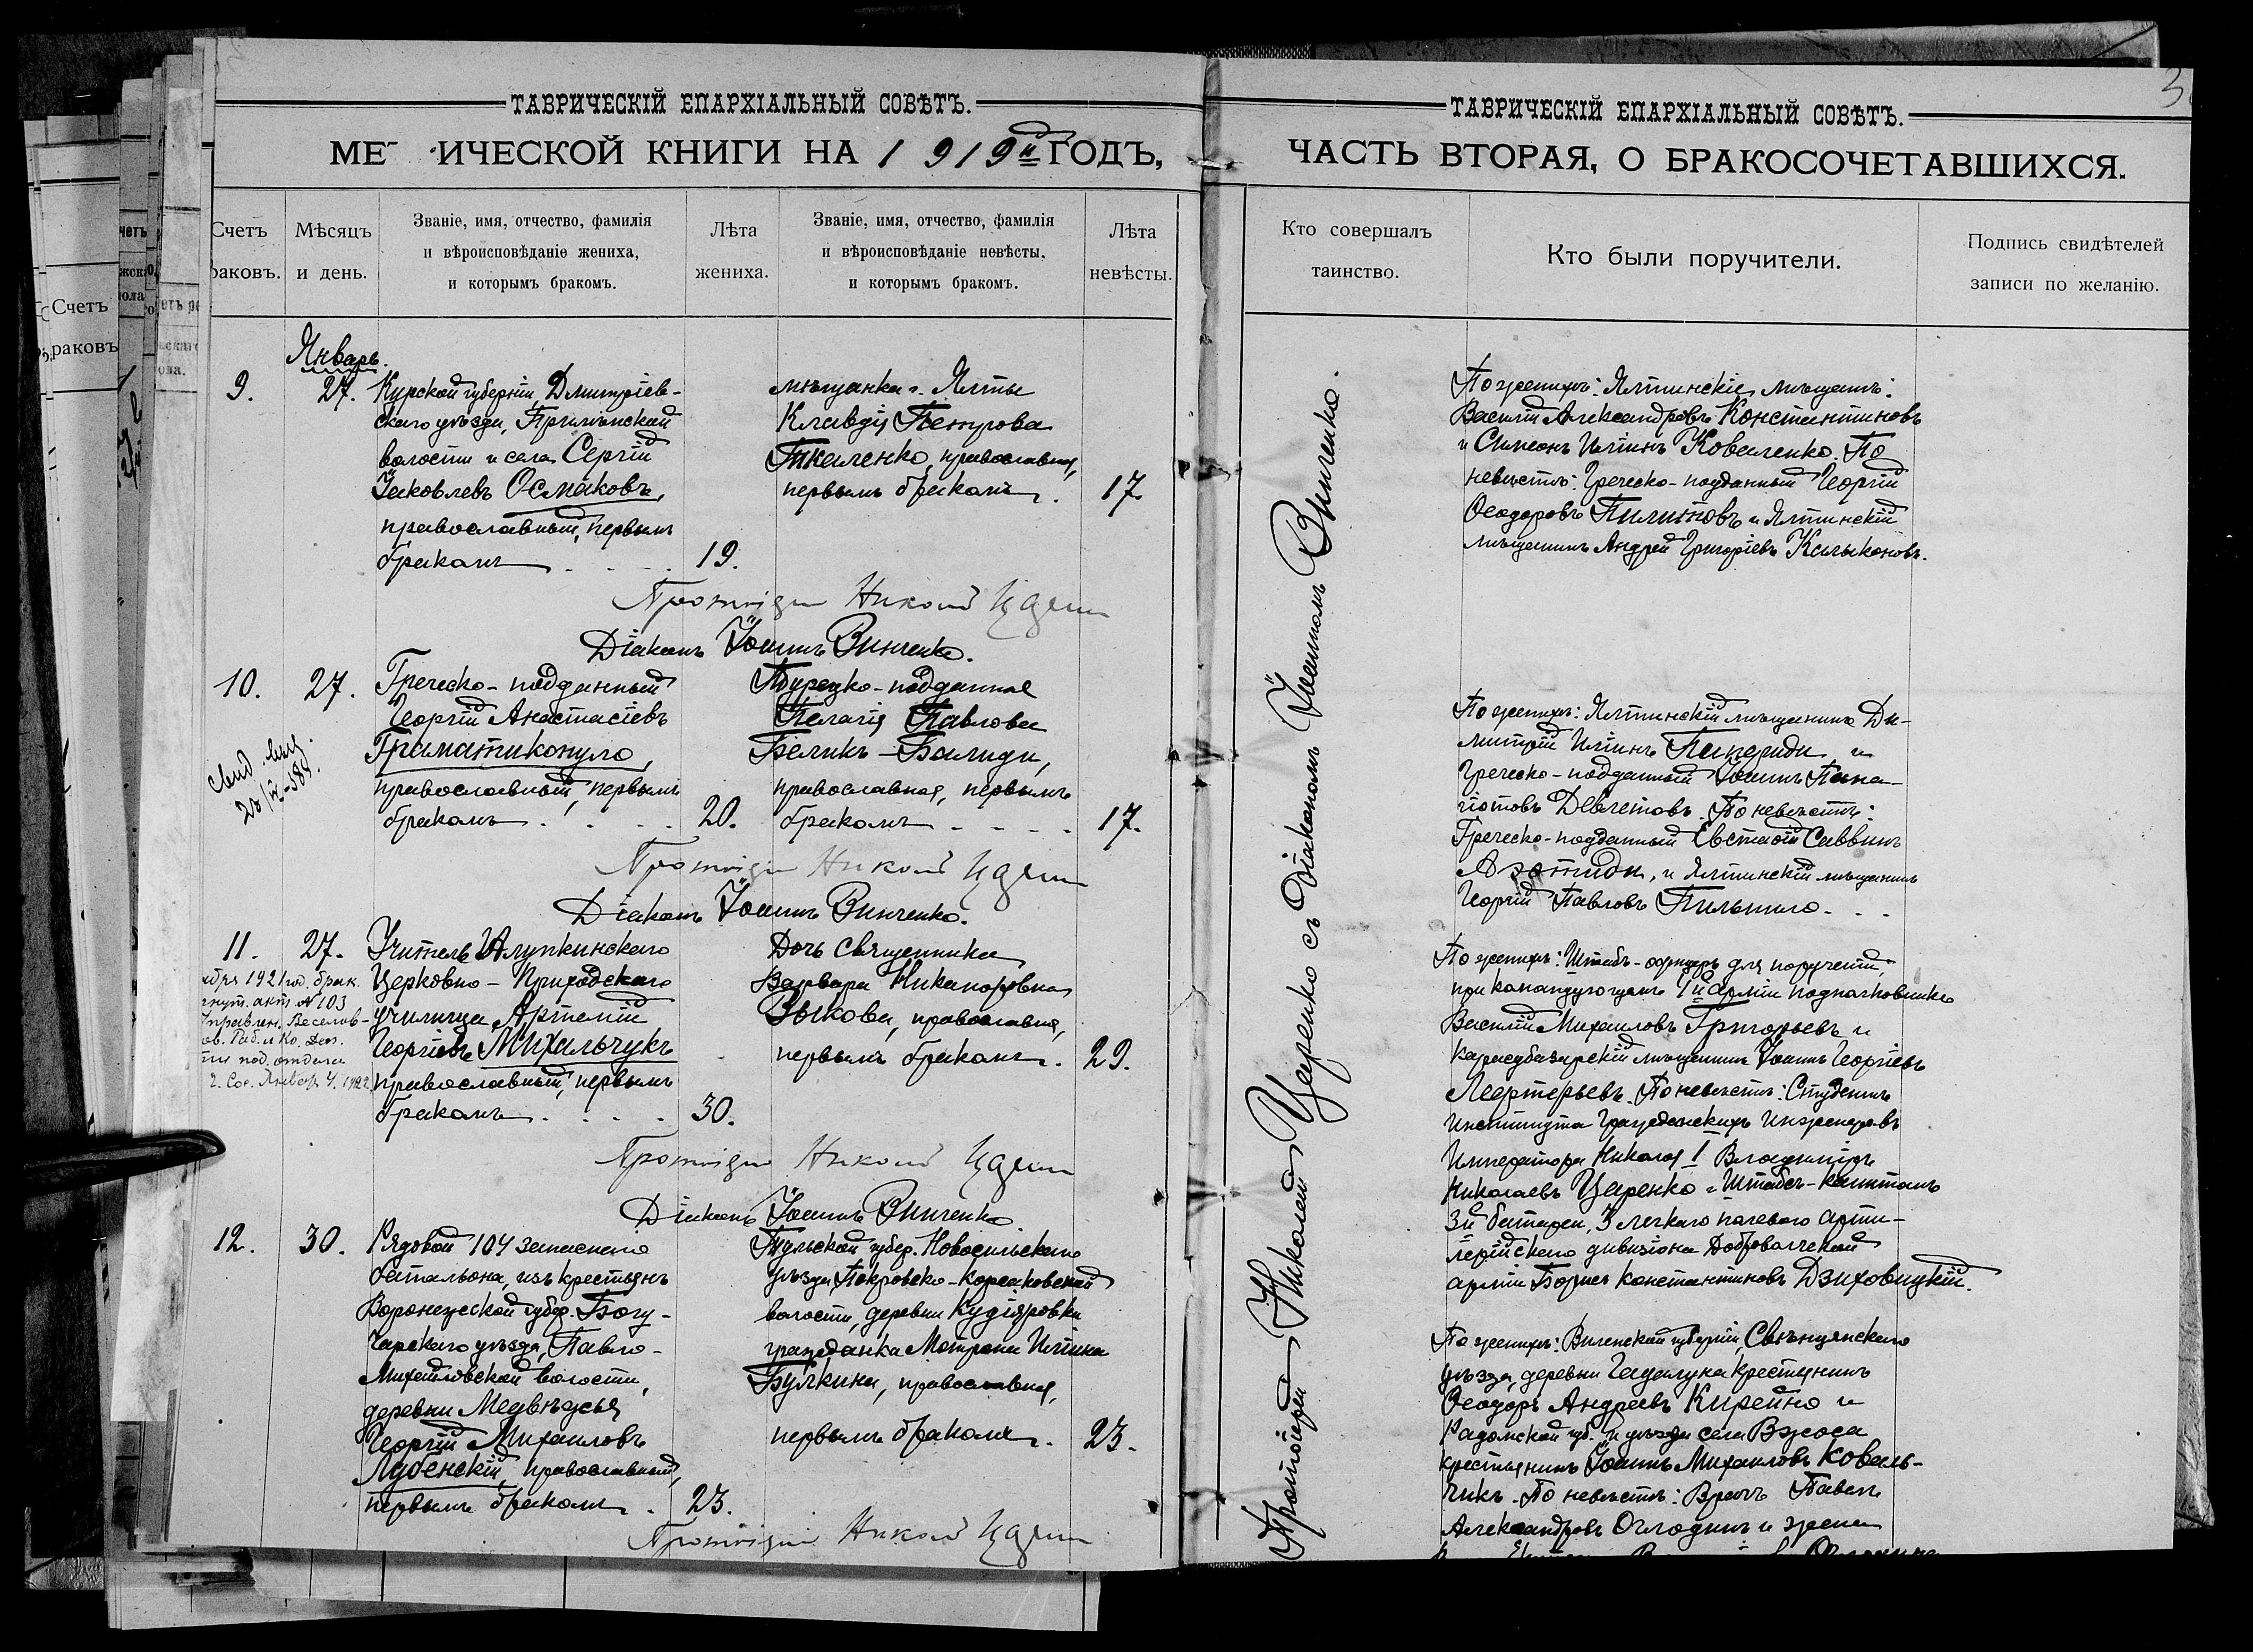 ТАВРИЧЕСКІЙ ЕПАРХІАЛЬНЫЙ СОВѢТЪ.
МЕ ИЧЕСКОЙ КНИГИ НА 1919й ГОДЪ,
Счетъ
раковъ.
Мѣсяцъ
и день.
Званіе, имя, отчество, фамилія
и вѣроисповѣданіе жениха,
и которымъ бракомъ.
Лѣта
жениха.
Званіе, имя, отчество, фамилія
и вѣроисповѣданіе невѣсты,
и которымъ бракомъ.
Лѣта
невѣсты.
Январь.
9.
27.
Курской губерніи, Дмитріев-
скаго уѣзда,
волости и села Сергій
Іаковлевъ Осмаковъ,
православный, первымъ
бракомъ
19.
мѣщанка г. Ялты
Клавдія Петрова
Ткаленко, православная,
первымъ бракомъ.
17.
Протоіерей Николай
Діаконъ Іоаннъ Винченко.
10.
27.
Греческо-подданный
Георгій Анастасіевъ
Граматикопуло,
православный, первымъ
бракомъ
20.
Турецко-подданная
Пелагія Павлова
Беликъ-Балиди,
православная, первымъ
бракомъ
17.
Протоіерей Николай
Діаконъ Іоаннъ Винченко.
11.
27.
1921 год. брак.
акт № 103
Веселов-
под. отдела
Январ 4. 1922
Учитель Алупкинскаго
Церковно-Приходскаго
училища Артемій
Георгіевъ Михальчукъ
православный, первымъ
бракомъ
30.
Дочь Священника
Варвара Никаноровна
Зыкова, православная,
первымъ бракомъ.
29.
Протоіерей Николай
Діаконъ Іоаннъ Винченко
12.
30.
Рядовой 104 запаснаго
батальона, изъ крестьянъ
Воронежской губер. Богу-
чарскаго уѣзда, Павло-
Михайловской волости,
деревни Медвѣжья
Георгій Михаиловъ
Лубенскій, православный,
первымъ бракомъ.
23.
Тульской губер. Новосильскаго
уѣзда, Покровско-Корсаковской
волости, деревни Кудіяровки
гражданка Матрона Иліина
Булкина, православная,
первымъ бракомъ.
23.
Протоіерей Николай
ТАВРИЧЕСКІЙ ЕПАРХІАЛЬНЫЙ СОВѢТЪ.
ЧАСТЬ ВТОРАЯ, О БРАКОСОЧЕТАВШИХСЯ.
Кто совершалъ
таинство.
Кто были поручители.
Подпись свидѣтелей
записи по желанію.
Протоіерей Николай Царенко съ Діакономъ Іоанномъ Винченко.
По женихѣ: Ялтинскіе мѣщане:
Василій Александровъ Константиновъ
и Симеонъ Иліинъ Коваленко. По
невѣстѣ: Греческо-подданный Георгій
Ѳеодоровъ Пилитовъ и Ялтинскій
мѣщанинъ Андрей Григоріевъ Калыконовъ.
По женихѣ: Ялтинскій мѣщанинъ Ди-
митрій Иліинъ и
Греческо-подданный Іоаннъ Пана-
гіотовъ Девлетовъ. По невѣстѣ:
Греческо-подданный Евстафій Саввинъ
и Ялтинскій мѣщанинъ
Георгій Павловъ
По женихѣ: Штабъ-офицеръ для порученій
при командующемъ арміи подполковникъ
Василій Михаиловъ Григорьевъ и
карасубазарскій мѣщанинъ Іоаннъ Георгіевъ
По невѣстѣ: Студентъ
Института Гражданскихъ Инженеровъ
Императора Николая I Владиміръ
Николаевъ Царенко и Штабсъ-капитанъ
3й батареи, 3 легкаго полеваго арти-
лерійскаго дивизіона Добровольческой
арміи Борисъ Константиновъ Дзиховицкій.
По женихѣ: Виленской губерніи, Свѣнцянскаго
уѣзда, деревни крестьянинъ
Ѳеодоръ Андреевъ Кирейно и
Радомской губ. и уѣзда села
крестьянинъ Іоаннъ Михаиловъ Коваль-
чикъ. По невѣстѣ: Врачъ Павелъ
Александровъ и жена
Счетъ
раковъ